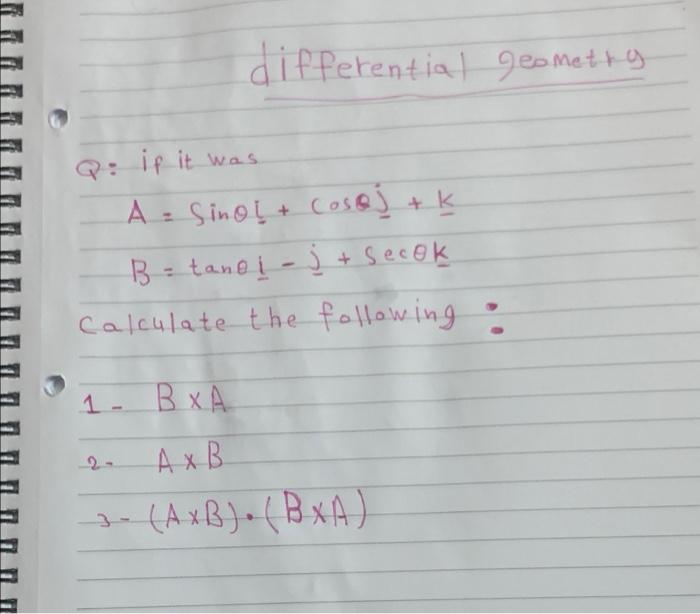 differential geometry
Q: if it was
A = Sinθi + Cosθj + k
B = tanθi - j + Secθk
Calculate the following :
1 - B × A
2 - A × B
3 - (A×B)•(B×A)